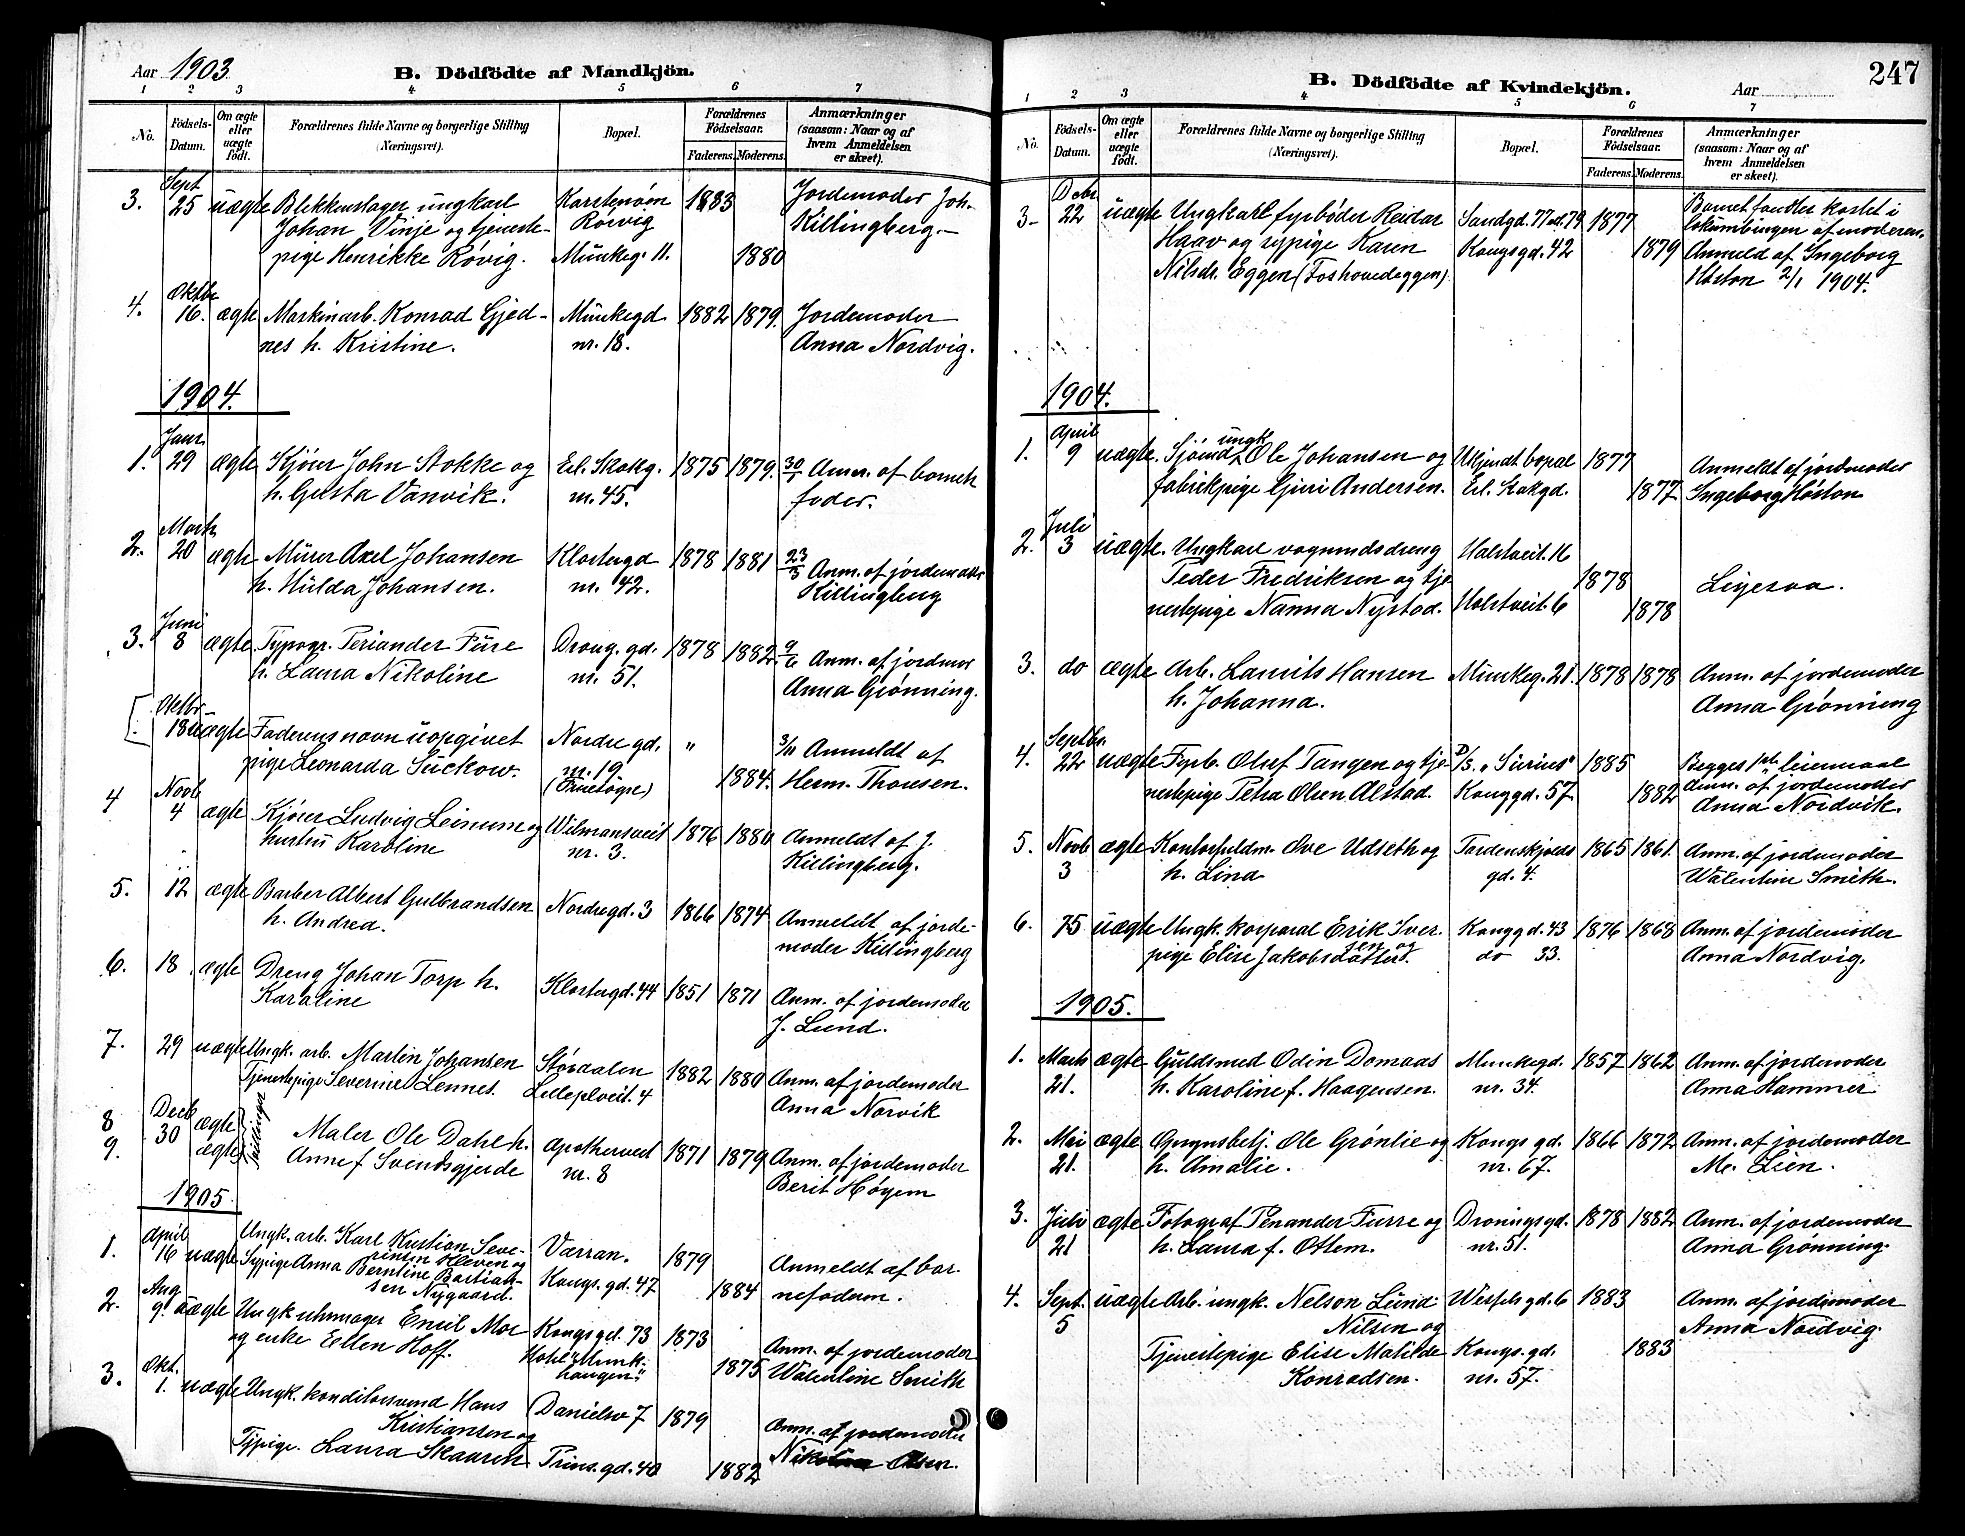 Aar 1903
B. Dödfödte af Mandkjön.
1 2 3 4 5 6 7
No.
Födsels-Datum.
Om ægte eller uægte födt.
Forældrenes fulde Navne og borgerlige Stilling
(Næringsvei).
Bopæl.
Forældrenes Födselsaar.
Faderens. Moderens.
Anmærkninger
(saasom: Naar og af
hvem Anmeldelsen
er skeet).
3. Sept 25 uægte Blikkenslager ungkarl Karstenøen 1883 Jordemoder Joh.
Johan Vinje og tjeneste- Rørvig Killingberg.
pige Henrikke Røvig. Munkeg. 11. 1880
4. Oktbr 16. ægte Maskinarb. Konrad Gjed- Munkegd. 1882 1879. Jordemoder
nes h. Kristine. nr. 18. Anna Nordvig.
1904.
1. Janr 29 ægte Kjører John Stokke og Erl. Skakg. 1875 1879. 30/1 Anm. af barnets
h. Gusta Vanvik. nr. 45. fader.
2. Marts 20 ægte Murer Axel Johansen Klostergd 1878 1881 23/3 Anm. af jordemoder
h. Hulda Johansen. nr. 42. Killingberg
3. Juni 8 ægte Typogr. Periander Fure Drong. gd. 1878 1882. 9/6 Anm. af jordmor
h. Laura Nikoline nr. 51. Anna Grønning.
Oktbr 18 uægte Faderens navn uopgivet Nordre gd. " 3/11 Anmeldt af
pige Leonarda Suckow. nr. 19 1884. Herm. Thousen.
4 Novb 4 ægte Kjører Ludvig Leinum og Wilmansveit 1876 1880 Anmeldt af J.
hustru Karoline nr. 3. Killingberg.
5. 12 ægte Barber Albert Gulbrandsen Nordregd. 3 1866 1874. Anmeldt af jorde-
h. Andrea. moder Killingberg
6. 18 ægte Dreng Johan Torp h. Klostergd. 44 1851 1871 Anm. af jordemoder
Karoline J. Lund.
7. 29 uægte Ungk. arb. Martin Johansen Stördalen 1882 1880 Anm. af jordemoder
Tjenestepige Severine Lennes. Lilleplveit. 4 Anna Norvik
8 Decb 30 ægte tvillinger Maler Ole Dahl h. Apotherveit 1871 1879 Anm. af jordemoder
9. ægte Anne f Svendsgjerde nr. 8 Berit Høyem
1905.
1. April 16 uægte Ungk. arb. Karl Kristian Seve- Værran. 1879 Anmeldt af bar-
rinsen Kleven og
Sypige Anna Berntine Bastian- Kongs. gd. 47 1884 nefaderen.
sen Nygaard.
2. Aug 9. uægte Ungk uhrmager Emil Moe Kongsgd. 73 1873 Anm. af jordemoder
og enke Ellen Hoff. Hotel "Munk- 1875 Valentine Smith
haugen"
3. Okt. 1. uægte Ungk. konditorsvend Hans Danielsv 7 1879 Anm. af jordemoder
Kristiansen og
Sypige. Laura Skaaren Prins. gd. 40 1882 Olsen.
247
B. Dödfödte af Kvindekjön.
Aar
1 2 3 4 5 6 7
No.
Födsels-Datum.
Om ægte eller uægte födt.
Forældrenes fulde Navne og borgerlige Stilling
(Næringsvei).
Bopæl.
Forældrenes Födselsaar.
Faderens. Moderens.
Anmærkninger
(saasom: Naar og af
hvem Anmeldelsen
er skeet).
3- Debr 22 uægte Ungkarl fyrbøder Reidar Sandgd. 77 el. 79 1877 Barnet fandtes kastet i
Haav og sypige Karen Kongsgd. 42 1879 af moderen.
Nilsdr. Eggen (Foshovedeggen) Anmeld af Ingeborg
Høston 2/1 1904.
1904.
1. April 9 uægte. Sjömd ungk Ole Johansen og Ukjendt bopæl 1877 Anmeldt af jordmoder
fabrikpige Guri Andersen. Erl. Skakgd. 1877 Ingeborg Høston
2. Juli 3 uægte. Ungkarl vognmdsdreng Halstveit. 16 1878 Ligesaa.
Peder Fredriksen og tje-
nestepige Nanna Nystad. Halstveit. 6 1878
3. do ægte Arb. Laurits Hansen Munkeg. 21. 1878 1878 Anm. af jordemoder
h. Johanna. Anna Grönning
4. Septbr. 22 uægte Fyrb. Oluf Tangen og tje- D/s. "Sirius" 1885 Begges 1ste leiermaal
nestepige Petra Olsen Alstad. Konggd. 57. 1882 Anm. af jordemoder
Anna Nordvik.
5. Novb 3 ægte Kontorfuldm. Ove Udseth og Tordenskjolds 1865 1861. Anm. af jordemoder
h. Lina gd. 4. Valentine Smith.
6. 15 uægte Ungk. korporal Erik Iver- Konggd. 43 1876 1868 Anm. af jordemoder
sen og
pige Elise Jakobsdatter. do 33. Anna Nordvig.
1905.
1. Marts 21. ægte Guldsmed Odin Domaas Munkegd. 1857 1862 Anm. af jordemoder
h. Karoline f. Haagensen. nr. 34. Anna Hammer
2. Mai 21. ægte Ole Grönlie og Kongs gd. 1866 1872 Anm. af jordemoder
h. Amalie. nr. 67. M. Lien.
3. Juli 21 ægte Fotograf Penander Furre og Droningsgd. 1878 1882 Anm. af jordemoder
h. Laura f. Ottem. nr. 51. Anna Grønning.
4. Sept. 5 uægte Arb. ungk. Nelson Lund Vestfels gd. 6 1883 Anm. af jordemoder
Nilsen og Anna Nordvig.
Tjenestepige Elise Matilde Kongs. gd. 1883
Konradsen. nr. 57.